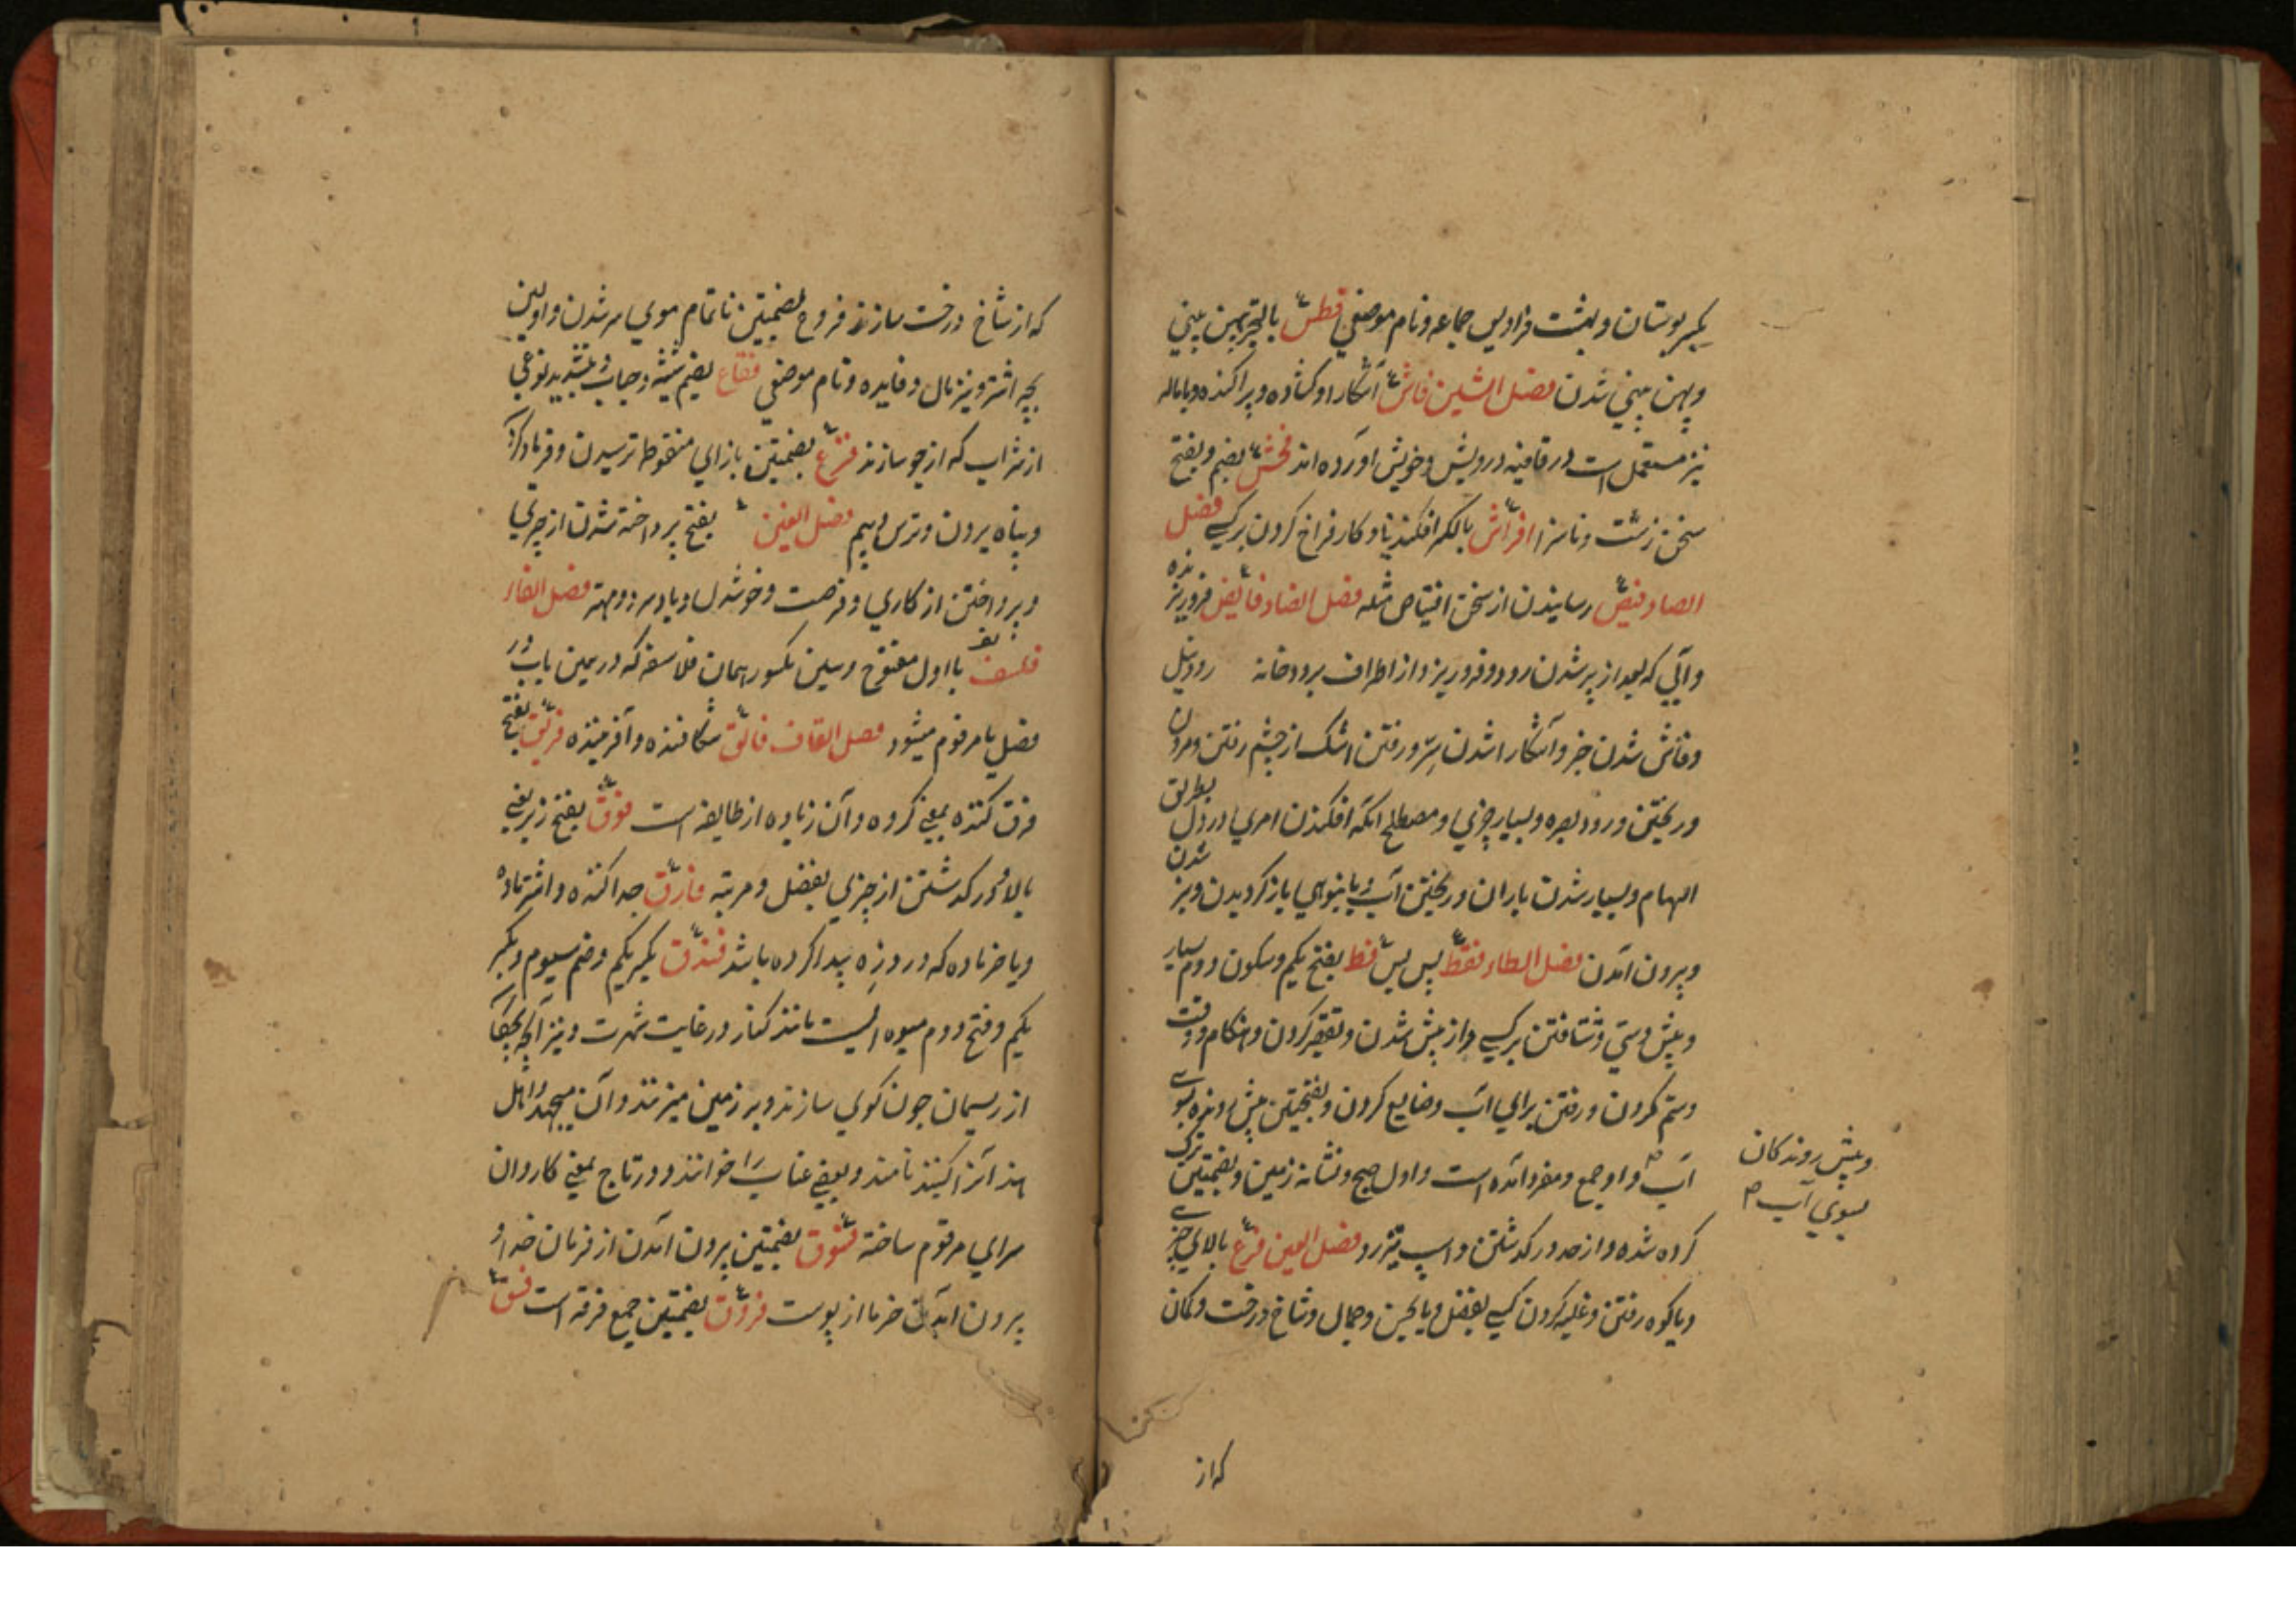 بکسر بوستان و بهشت فرادیس جماعه و نام موضعی فطس بالتحریک پهن بینی
و پهن بینی شدن فصل الشین فاش آشکارا و کشاده و پراکنده و باماله
نیز مستعمل است در قافیه درویش و خویش اورده اند فحش بضم و بفتح
سخن زشت و ناسزا افراش بالکسر افکندنیا و کار فراخ کردن بر کسی فصل
الصاد فیص رسانیدن از سخن افتیاص مثله فصل الضاد فایض فروریزنده
و آبی که بعد از پر شدن رود و فروریزد از اطراف برودخانه رود نیل
و فاش شدن خبر و آشکارا شدن سر و رفتن اشک از چشم رفتن و مردن
و ریختن و رود بصره و بسیار چیزی و مصطلح انکه افکندن امری در دل بطریق
الهام و بسیار شدن باران و ریختن آب و بانبوهی بازکردیدن و پر شدن
و بیرون آمدن فصل الطاء فقط پس بس فط بفتح یکم و سکون دوم بسیار
و پیش دستی و شتافتن بر کسی و از پیش شدن و تقصیر کردن و هنکام و وقت
و ستم کردن و رفتن برای آب و ضایع کردن و بفتحتین پیش رونده بسوی
آب و او جمع و مفرد آمده است و اول صبح و نشانه زمین و بضمتین ترک
کرده شده و از حد درکذشتن و اسپ تیزرو فصل العین فرع بالای چیزی
و بالکوه رفتن و غلبه کردن کسی بفضل و یا بحسن و جمال و شاخ درخت و کمان
و پیش روندکان
بسوی آب
که از
که از شاخ درخت سازند فروع بضمتین ناتمام موی سر شدن و اولین
بچه اشتر و نیز مال و فایده و نام موضعی فقاع بضم شیشه و حباب و بتشدید نوعی
از شراب که از جو سازند فزع بضمتین بازای منقوطه ترسیدن و فریاد کردن
و پناه بردن و ترس و بیم فصل الغین بفتح پرداخته شدن از چیزی
و پرداختن از کاری و فرصت و خوشدل و بادسر دو مهتر فصل الفاء
فلسف بااول مفتوح و سین مکسور همان فلاسفه که در همین باب در
فصل یا مرقوم میشود فصل القاف فالق شکافنده و آفریننده فریق بفتح
فرق کننده بمعنی کروه و آن زیاده از طایفه است فوق بفتح زبر یعنی
بالا و درکذشتن از چیزی بفضل و مرتبه فارق جدا کننده و اشتر ماده
و یا خر ماده که در دزه پیدا کرده باشد فندق بکسر یکم و ضم سیوم و بکسر
یکم و فتح دوم میوه ایست مانند کنار در غایت شهرت و نیز آنچه بچکان
از ریسمان چون کوی سازند و بر زمین میزنند و آن میجهد و اهل
هند آنرا کیند نامند و بعضی عناب را خوانند و در تاج بمعنی کاروان
سرای مرقوم ساخته فسوق بضمتین بیرون آمدن از فرمان خدا و
بیرون آمدن خرما از پوست فروق بضمتین جمع فرقه است فسق